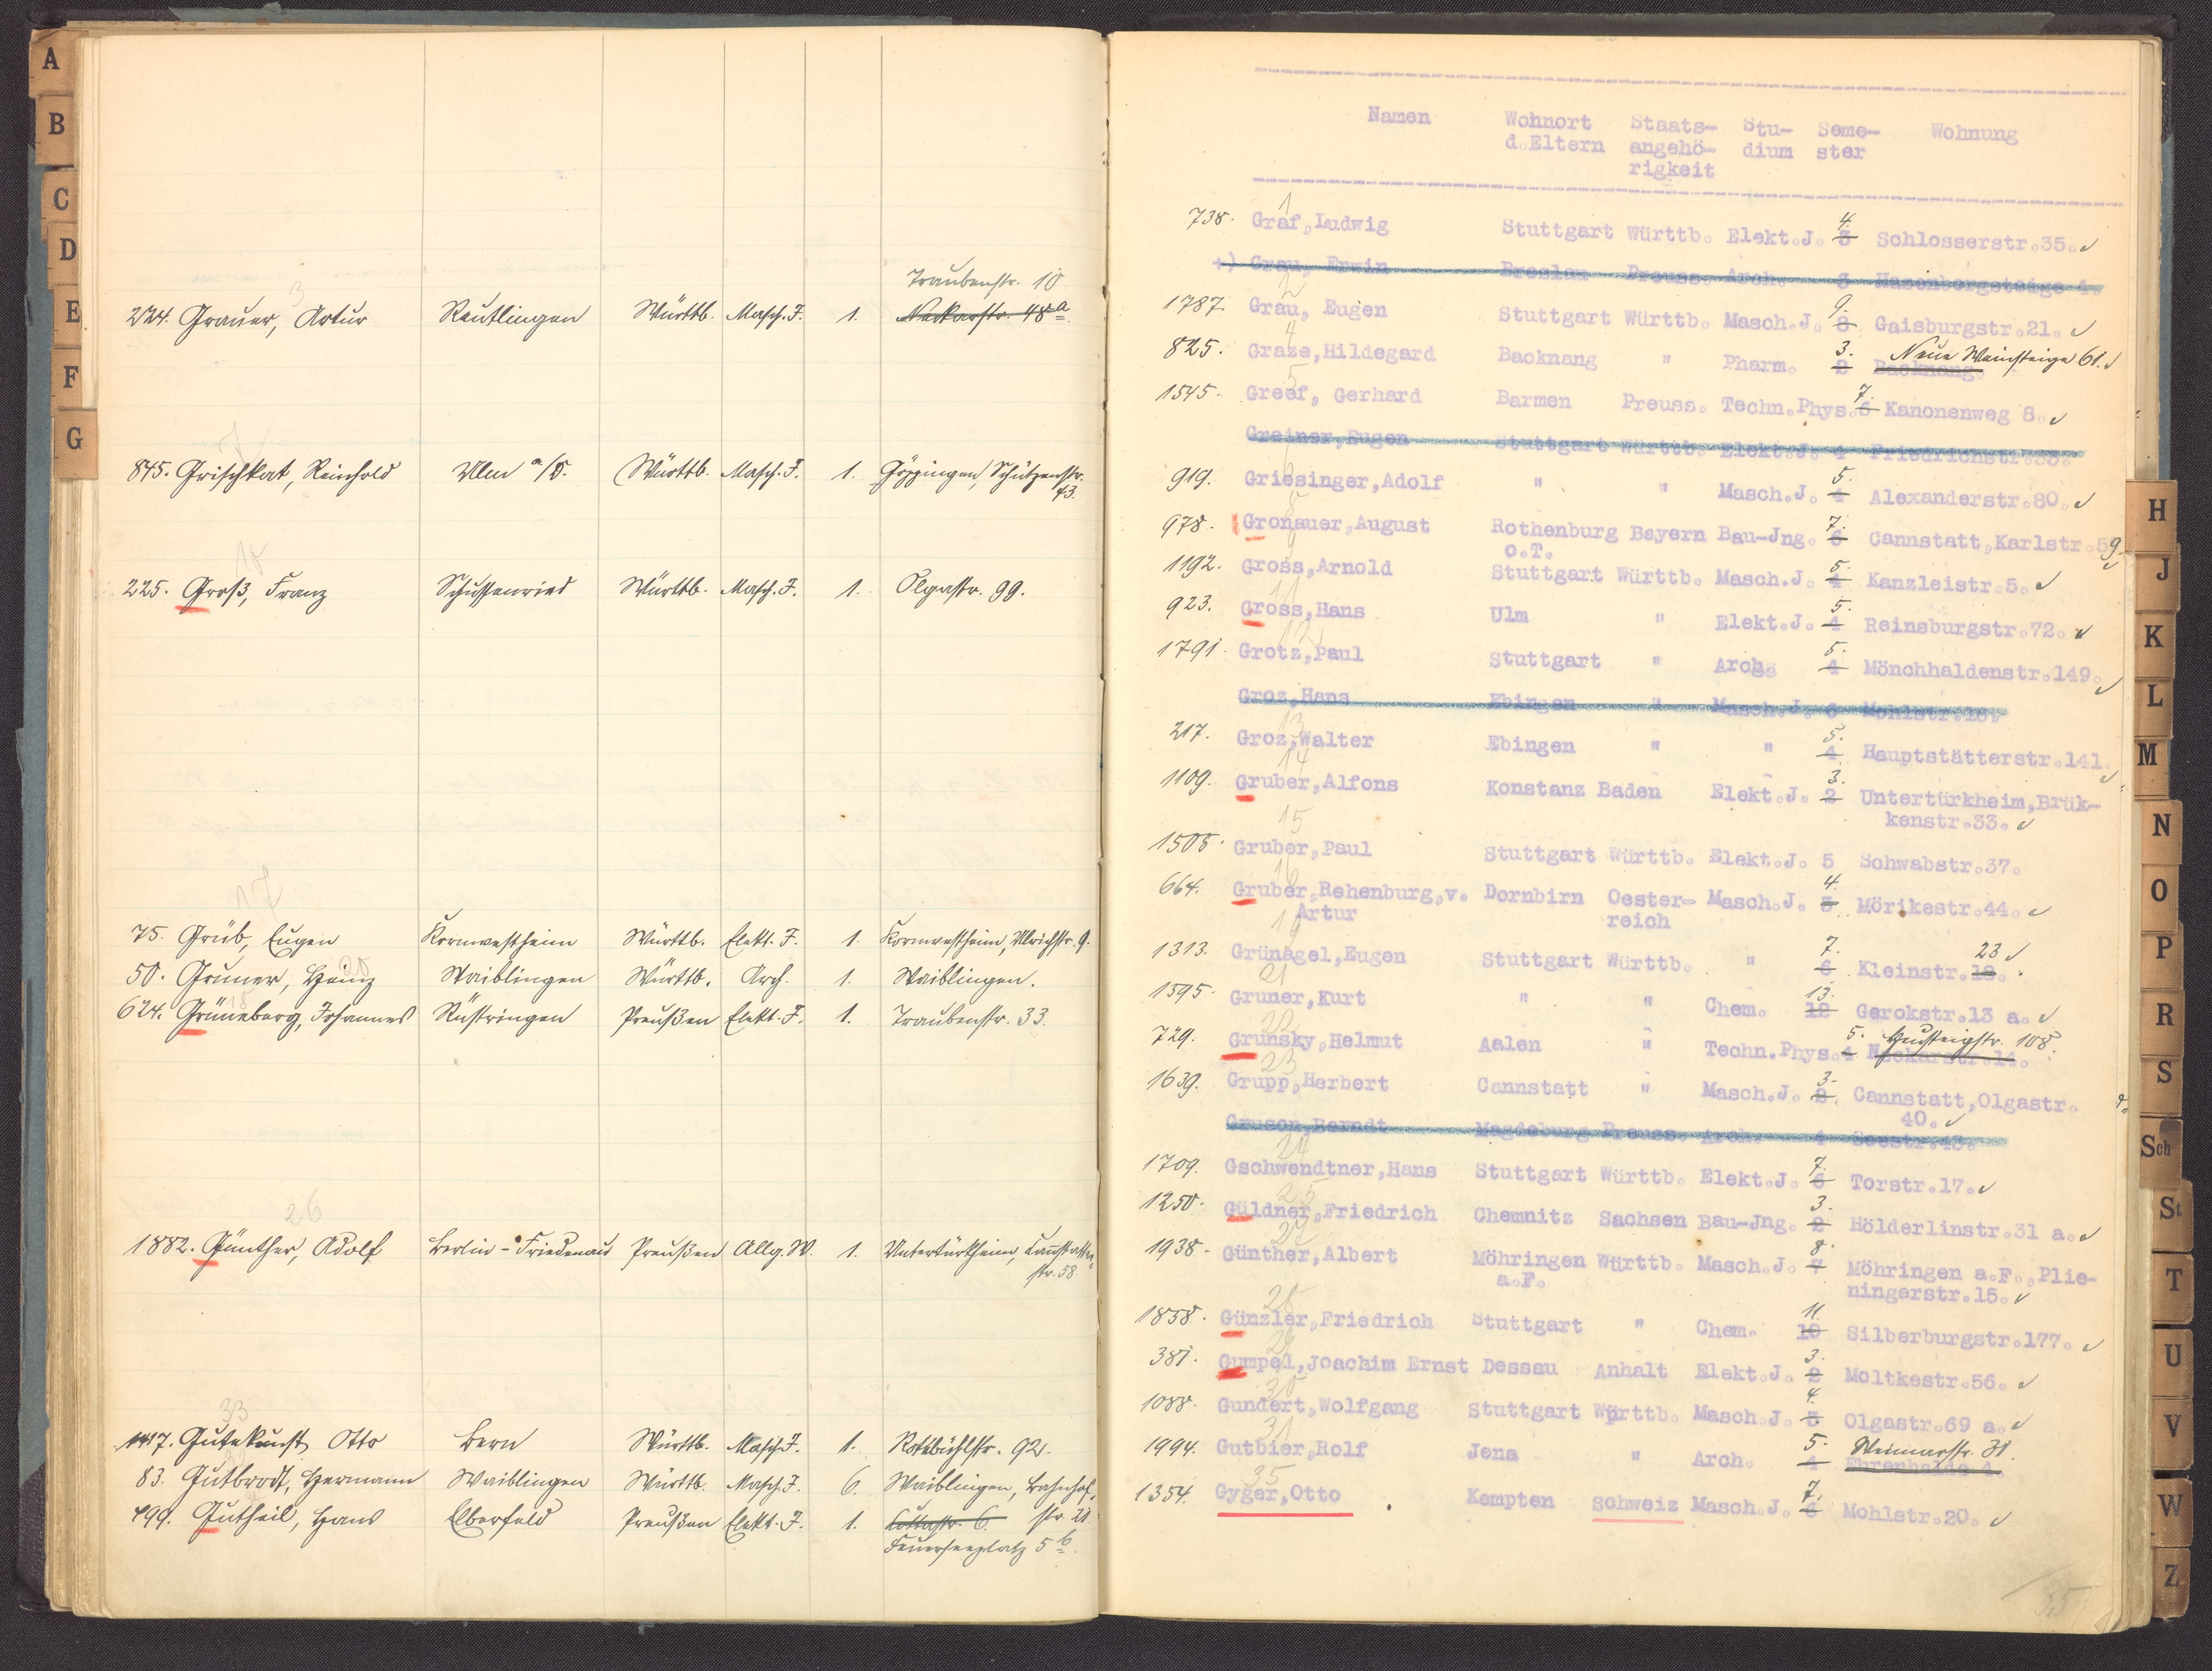 A
B
C
D
E
F
G
Traubenstr. 10
224. Grauer, Artur Reutlingen Württb. Masch. J. 1. Neckarstr. 48a.
3
7
845. Grischkat, Reinhold Ulm a/D. Württb. Masch. J. 1. Göppingen, Schützenstr.
43.
10
225. Groß, Franz Schussenried Württb. Masch. J. 1. Olgastr. 99.
17
75. Grüb, Eugen Kornwestheim Württb. Elekt. J. 1. Kornwestheim, Ulrichstr. 9.
20
50. Gruner, Heinz Waiblingen Württb. Arch. 1. Waiblingen.
18
624. Grüneberg, Johannes Rüstringen Preußen Elekt. J. 1. Traubenstr. 33.
26
1882. Günther, Adolf Berlin-Friedenau Preußen Allg. W. 1. Untertürkheim, Cannstatter-
str. 58.
33
1417. Gutekunst, Otto Bern Württb. Masch. J. 1. Rotebühlstr. 92.
83. Gutbrodt, Hermann Waiblingen Württb. Masch. J. 6. Waiblingen, Bahnhof-
str. 21.
499. Gutheil, Hans Elberfeld Preußen Elekt. J. 1. Cottastr. 6.
Feuerseeplatz 5b.
Namen Wohnort Staats- Stu- Seme- Wohnung
d.Eltern angehö- dium ster
rigkeit
1
738. Graf,Ludwig Stuttgart Württb. Elekt.J. 3 4. Schlosserstr.35.
+) Grau, Erwin Breslau Preuss. Arch. 3 Hasenbergsteige 4.
2
1787. Grau, Eugen Stuttgart Württb. Masch.J. 8 9. Gaisburgstr.21.
4
825. Graze,Hildegard Backnang " Pharm. 2 3. Backnang. Neue Weinsteige 61.
5
1545. Greef, Gerhard Barmen Preuss. Techn.Phys.6 7. Kanonenweg 8.
Greiner,Eugen Stuttgart Württb. Elekt.J. 4 Friedrichstr.33.
6
919. Griesinger,Adolf " " Masch.J. 4 5. Alexanderstr.80.
8
978. Gronauer,August Rothenburg Bayern Bau-Jng. 6 7. Cannstatt,Karlstr.59.
o.T.
9
1192. Gross,Arnold Stuttgart Württb. Masch.J. 4 5. Kanzleistr.5.
11
923. Gross,Hans Ulm " Elekt.J. 4 5. Reinsburgstr.72.
12
1791. Grotz,Paul Stuttgart " Arch. 4 5. Mönchhaldenstr.149.
Groz,Hans Ebingen " Masch.J. 6 Mohlstr.18.
13
217. Groz,Walter Ebingen " " 4 5. Hauptstätterstr.141.
14
1109. Gruber,Alfons Konstanz Baden Elekt.J. 2 3. Untertürkheim,Brük-
kenstr.33.
15
1505. Gruber,Paul Stuttgart Württb. Elekt.J. 5 Schwabstr.37.
16
664. Gruber,Rehenburg,v. Dornbirn Oester- Masch.J. 3 4. Mörikestr.44.
Artur reich
19
1313. Grünagel,Eugen Stuttgart Württb. " 6 7. Kleinstr.18. 23
21
1595. Gruner,Kurt " " Chem. 12 13. Gerokstr.13 a.
22
729. Grunsky,Helmut Aalen " Techn.Phys.4 5. Neckarstr.14. Heusteigstr. 108.
23
1639. Grupp,Herbert Cannstatt " Masch.J. 2 3. Cannstatt,Olgastr.
40.
Gruson,Berndt Magdeburg Preuss. Arch. 4 Seestr.43.
24
1709. Gschwendtner,Hans Stuttgart Württb. Elekt.J. 6 7. Torstr.17.
25
1250. Güldner,Friedrich Chemnitz Sachsen Bau-Jng. 2 3. Hölderlinstr.31 a.
27
1938. Günther,Albert Möhringen Württb. Masch.J. 7 8. Möhringen a.F.,Plie-
a.F. ningerstr.15.
28
1858. Günzler,Friedrich Stuttgart " Chem. 10 11. Silberburgstr.177.
29
381. Gumpel,Joachim Ernst Dessau Anhalt Elekt.J. 2 3. Moltkestr.56.
30
1088. Gundert,Wolfgang Stuttgart Württb. Masch.J. 3 4. Olgastr.69 a.
31
1994. Gutbier,Rolf Jena " Arch. 4 5. Ehrenhalde 4. Weimarstr. 31.
35
1354. Gyger,Otto Kempten Schweiz Masch.J. 6 7. Mohlstr.20.
35
H
J
K
L
M
N
O
P
R
S
Sch
St
T
U
V
W
Z